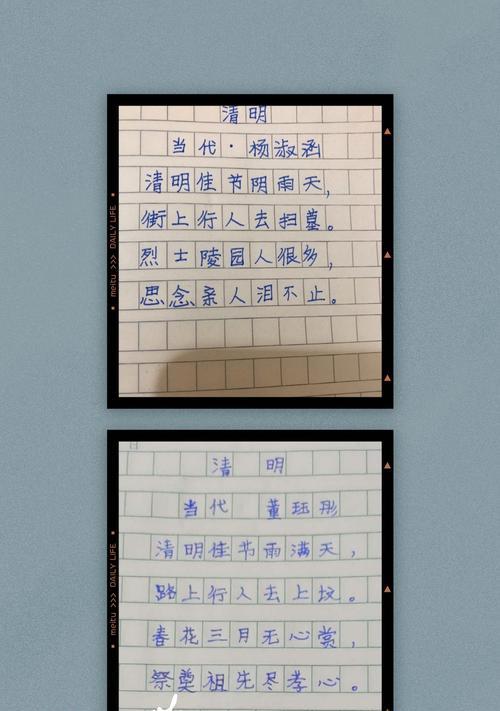 清明
当代·杨淑涵
清明佳节阴雨天，
街上行人去扫墓。
烈士陵园人很多，
思念亲人泪不止。
meitu >>> DAILY LIFE
清明
当代 董珏彤
清明佳节雨满天，
路上行人去上坟。
春花三月无心赏，
祭奠祖先尽孝心。
meitu >>> DAILY LIFE